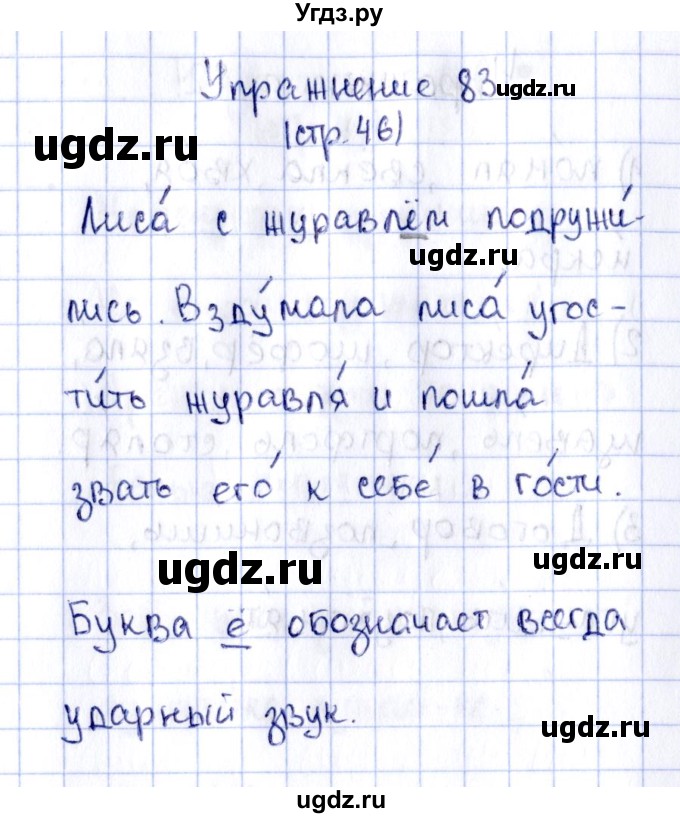 Угдз.ру
Упражнение 83 ugdz.ru
ugdz.ru (стр. 46)
Лиса́ с журавлём подружи́-
ugdz.ru
лись. Взду́мала лиса́ угос-
ти́ть журавля́ и пошла́
звать его́ к себе́ в го́сти.
ugdz.ru ugdz.ru
Буква ё обозначает всегда
ударный звук. ugdz.ru
ugdz.ru